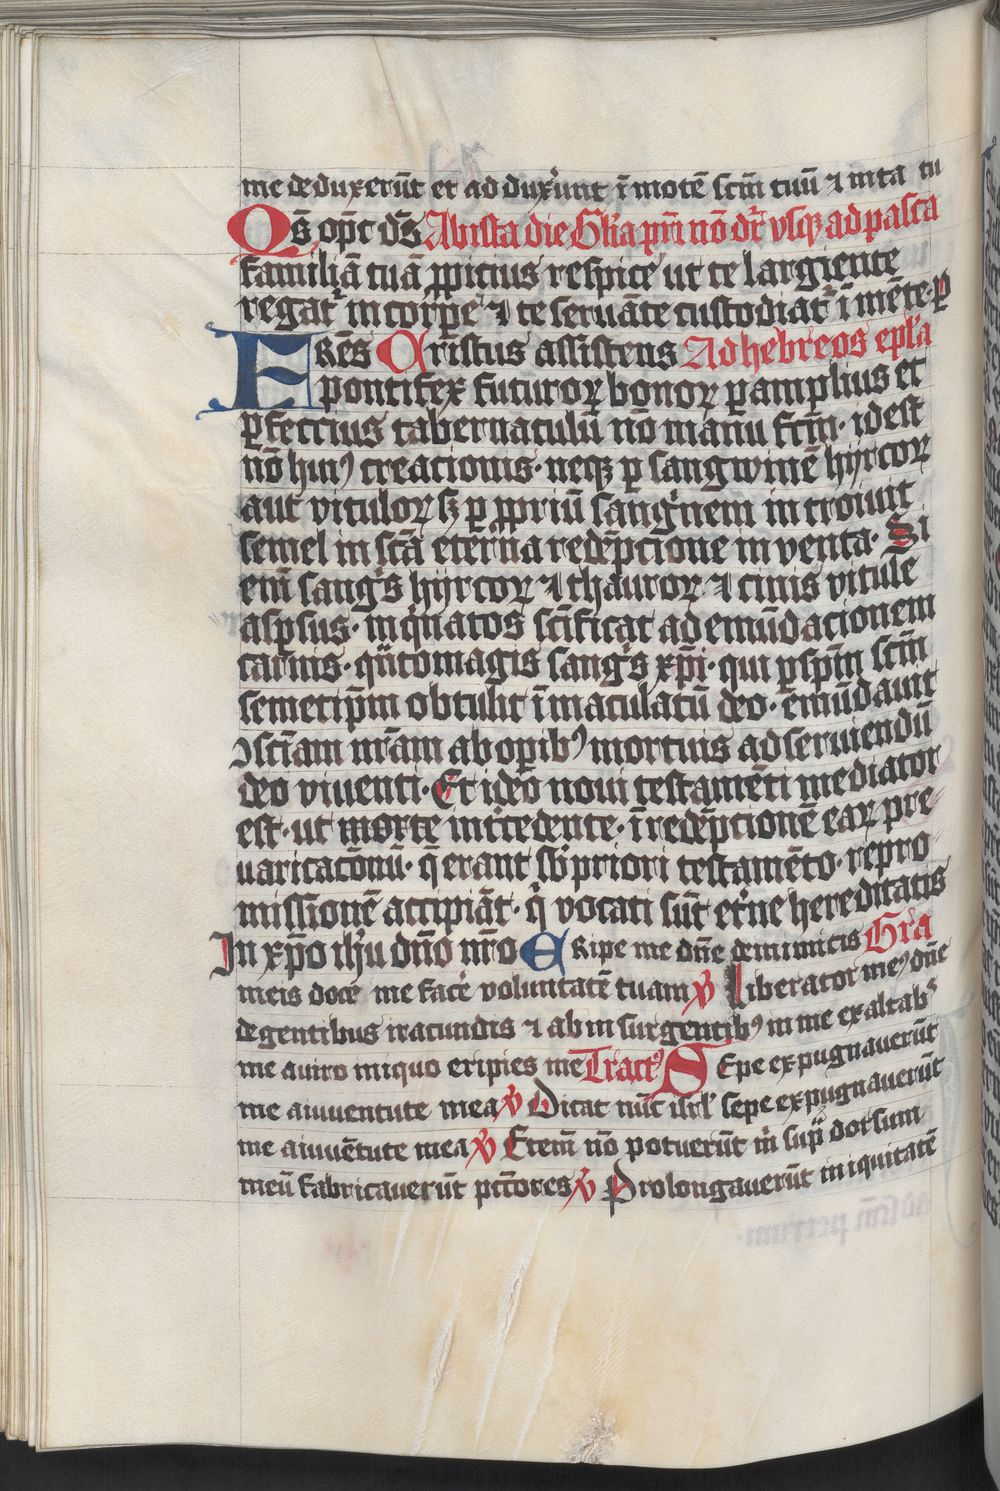 me deduxerūt et adduxer̄unt ī mōtē sc̄m tuū ⁊ in ta tu
Qs̄ op̄c ds̄ Ab ista die Gl̄ia pr̄i nō dr̄ vsqꝫ ad pasca
familiā tuā ꝓpicius respice ut te largiente
regat᷑ in corpe᷑ ⁊ te seruāte custodiat᷑ ī mēte· ꝑ
FRēs Cristus assistens Ad hebreos epl̄a
pontifex futuroꝝ bonoꝝ ꝑ amplius et
ꝑfectius tabernaculū nō manu fcm̄· id est
nō huiꝰ creacionis· neqꝫ ꝑ sangwinē hyrcoꝝ
aut vituloꝝ sꝫ ꝑ ꝓpriū sangⁱnem introiuit
semel in sc̄a eterna redēpcione inventa· Si
eni̅ sangⁱs hyrcoꝝ ⁊ thauroꝝ ⁊ cinis vitule
asꝑsus· inqⁱnatos sc̄ificat ad emūdacionem
carnis· qn̄to magis sangⁱs xp̄i· qui ꝑ spm̄ scm̄
semetip̄m obtulit īmaculatū deo· emūdauit
ꝯsciam nr̄am ab opibꝰ mortuis ad seruiendū
deo viuenti· Et ideo noui testamēti mediator
est· ut morte int᷑cedente· ī redēpcionē eaꝝ pre
uaricacōnū· q̄ erant sb̄ priori testamēto· repro
missionē accipiāt· qⁱ vocati sūt et᷑ne hereditatis
In xp̄o ih̄u dn̄o nr̄o ERipe me dn̄e de inimicis Gr̄a
meis doce me facer᷑ voluntatē tuam ℣ Liberator meꝰ dn̄e
de gentibus iracundis ⁊ ab insurgentibꝰ in me exaltabˢ
me a uiro iniquo eripies me Tractꝰ SEpe expugnauerūt
me a iuuentute mea ℣ Dicat nūc isrl̄ sepe expugnauerūt
me a iuuētute mea ℣ Etem̄ nō potuerūt mⁱ sup᷑ dorsum
meū fabricauerūt pctōres ℣ Prolongauerūt iniquitatē